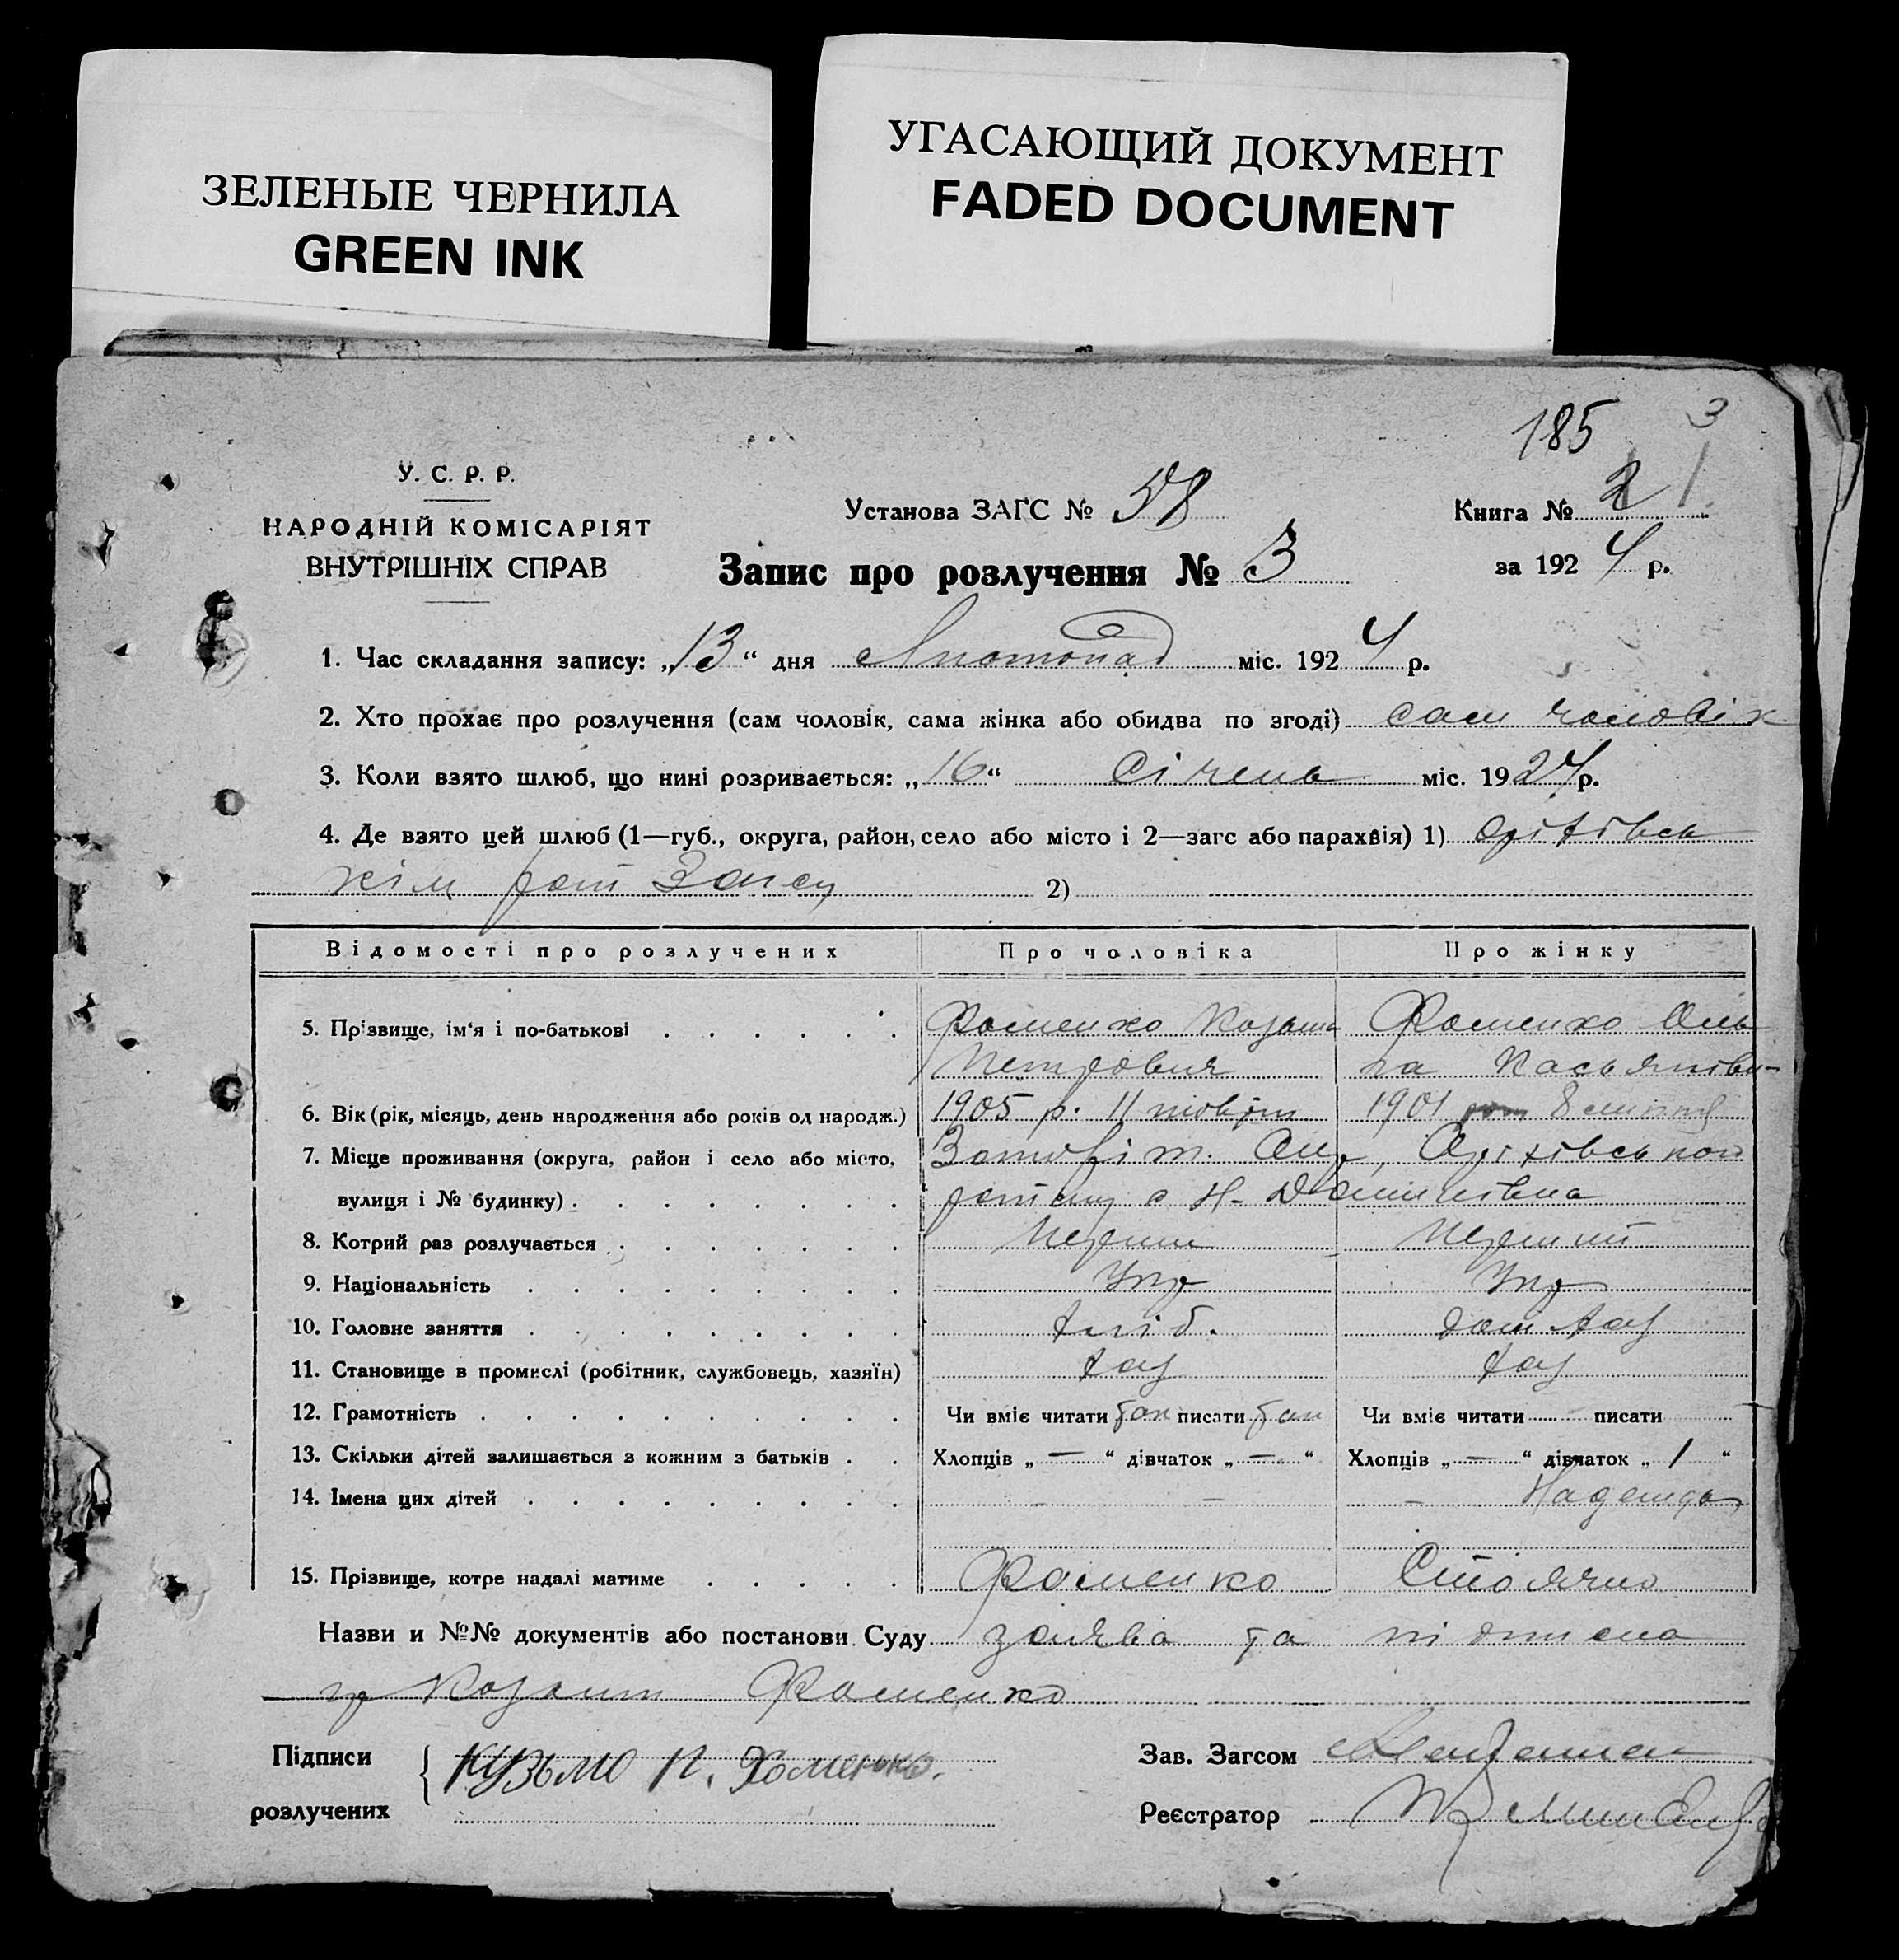 ЗЕЛЕНЫЕ ЧЕРНИЛА
GREEN INK
УГАСАЮЩИЙ ДОКУМЕНТ
FADED DOCUMENT
185 3
У. С. Р. Р.
НАРОДНІЙ КОМІСАРІЯТ
ВНУТРІШНІХ СПРАВ
Установа ЗАГС № 58
Книга № 2 1
Запис про розлучення № 3
за 1924 р.
1. Час складання запису: „13“ дня Листопад міс. 1924 р.
2. Хто прохає про розлучення (сам чоловік, сама жінка або обидва по згоді) сам чоловік
3. Коли взято шлюб, що нині розривається: „16“ Січень міс. 1924 р.
4. Де взято цей шлюб (1—губ., округа, район, село або місто і 2—загс або парахвія) 1) Оріхівсь
кім рай Загсу 2)
Відомості про розлучених Про чоловіка Про жінку
5. Прізвище, ім‘я і по-батькові Фоменко Козьма Фоменко
Петрович Касьянівн-
6. Вік (рік, місяць, день народження або років од народж.) 1905 р. 11 1901 8
7. Місце проживання (округа, район і село або місто, Оріхівськ
вулиця і № будинку) району с Н-
8. Котрий раз розлучається Перший Перший
9. Національність Укр Укр
10. Головне заняття хліб. дом хаз
11. Становище в промислі (робітник, службовець, хазяїн) хаз хаз
12. Грамотність Чи вміє читати так писати так Чи вміє читати - писати
13. Скільки дітей залишається з кожним з батьків Хлопців „ — “ дівчаток „ — “ Хлопців „ — “ дівчаток „ 1 “
14. Імена цих дітей - - - Надежда
15. Прізвище, котре надалі матиме Фоменко
Назви и №№ документів або постанови Суду заява та підписка
гр Фоменко
Підписи
розлучених
Кузьмо П. Хоменько.
Зав. Загсом
Реєстратор